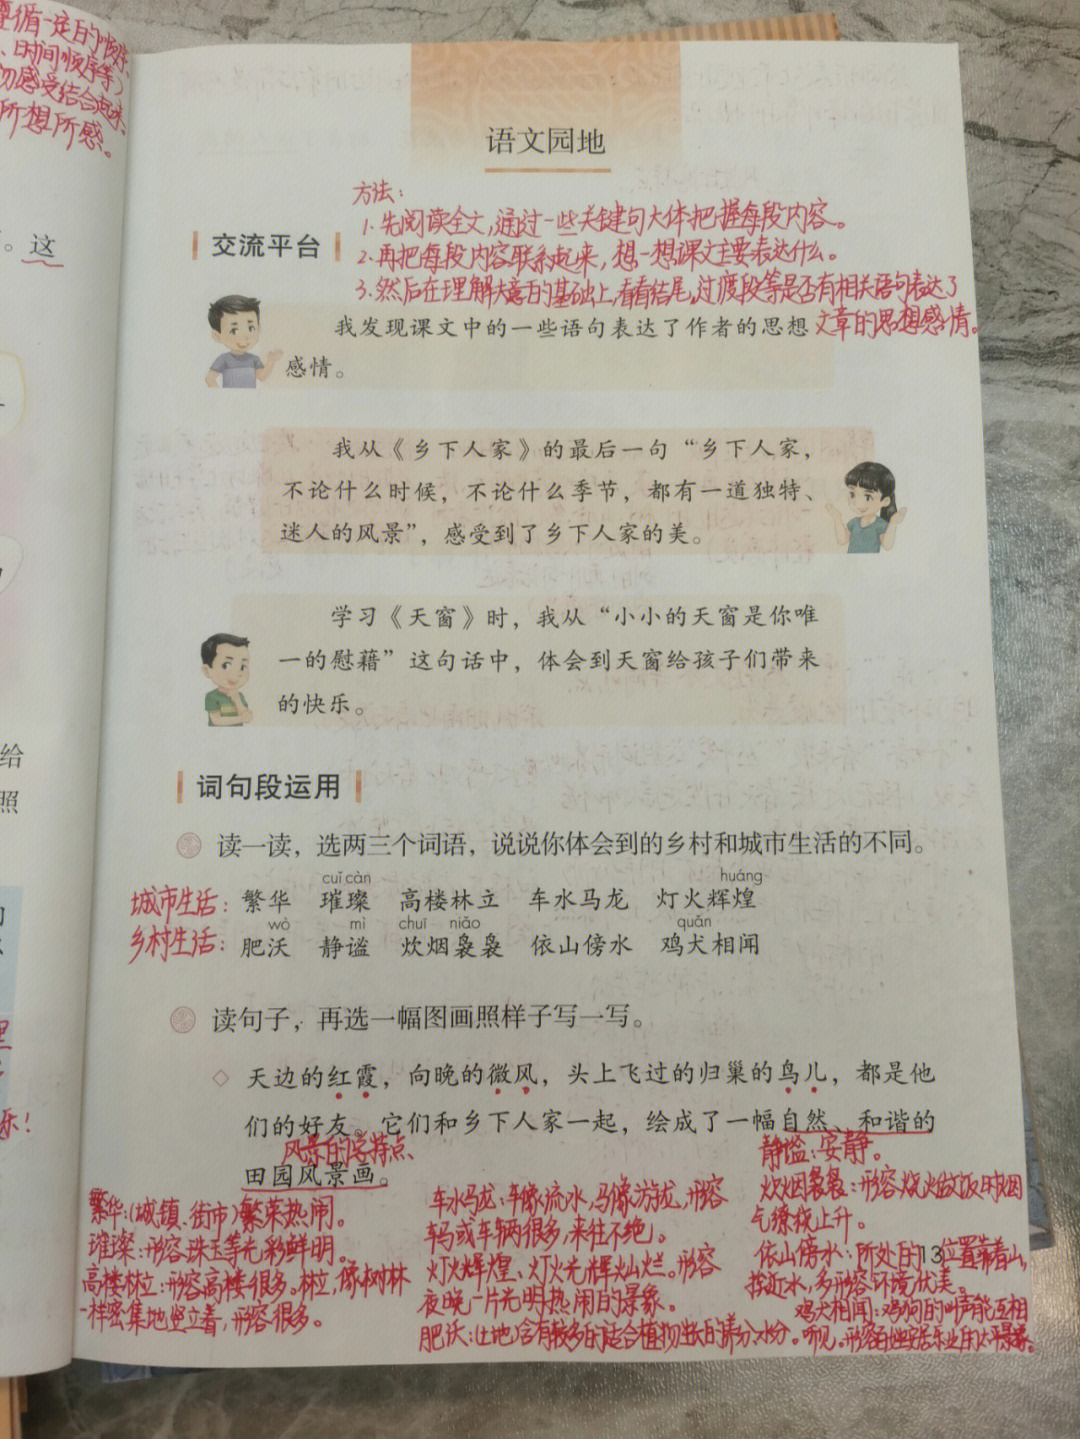 遵循一定的顺序、
、时间顺序等)
感受结合起来、
所想所感。
。这
给
照
乐!
语文园地
方法:
1.先阅读全文,通过一些关键句大体把握每段内容。
2.再把每段内容联系起来,想一想课文主要表达什么。
3.然后在理解大意的基础上,看看结尾,过渡段等是否有相关语句表达了
文章的思想感情。
交流平台
我发现课文中的一些语句表达了作者的思想
感情。
我从《乡下人家》的最后一句“乡下人家,
不论什么时候,不论什么季节,都有一道独特、
迷人的风景”,感受到了乡下人家的美。
学习《天窗》时,我从“小小的天窗是你唯
一的慰藉”这句话中,体会到天窗给孩子们带来
的快乐。
词句段运用
读一读,选两三个词语,说说你体会到的乡村和城市生活的不同。
cuǐ càn huáng
城市生活: 繁华 璀璨 高楼林立 车水马龙 灯火辉煌
wò mì chuī niǎo quǎn
乡村生活: 肥沃 静谧 炊烟袅袅 依山傍水 鸡犬相闻
读句子,再选一幅图画照样子写一写。
◇ 天边的红霞,向晚的微风,头上飞过的归巢的鸟儿,都是他
们的好友。它们和乡下人家一起,绘成了一幅自然、和谐的
田园风景画。
风景的特点、
繁华:(城镇、街市)繁荣热闹。
璀璨:形容珠玉等光彩鲜明。
高楼林立:形容高楼很多。林立,像树林
一样密集地竖立着,形容很多。
车水马龙:车像流水,马像游龙,形容
车马或车辆很多,来往不绝。
灯火辉煌:灯火光辉灿烂。形容
夜晚一片光明热闹的景象。
肥沃:(土地)含有较多的适合植物生长的养分、水分。
静谧:安静。
炊烟袅袅:形容烧火做饭时烟
气缭绕上升。
依山傍水:所处的位置靠着山,
挨近水,多形容环境优美。
鸡犬相闻:鸡狗的叫声能互相
听见。形容百姓安居乐业的太平景象。
13